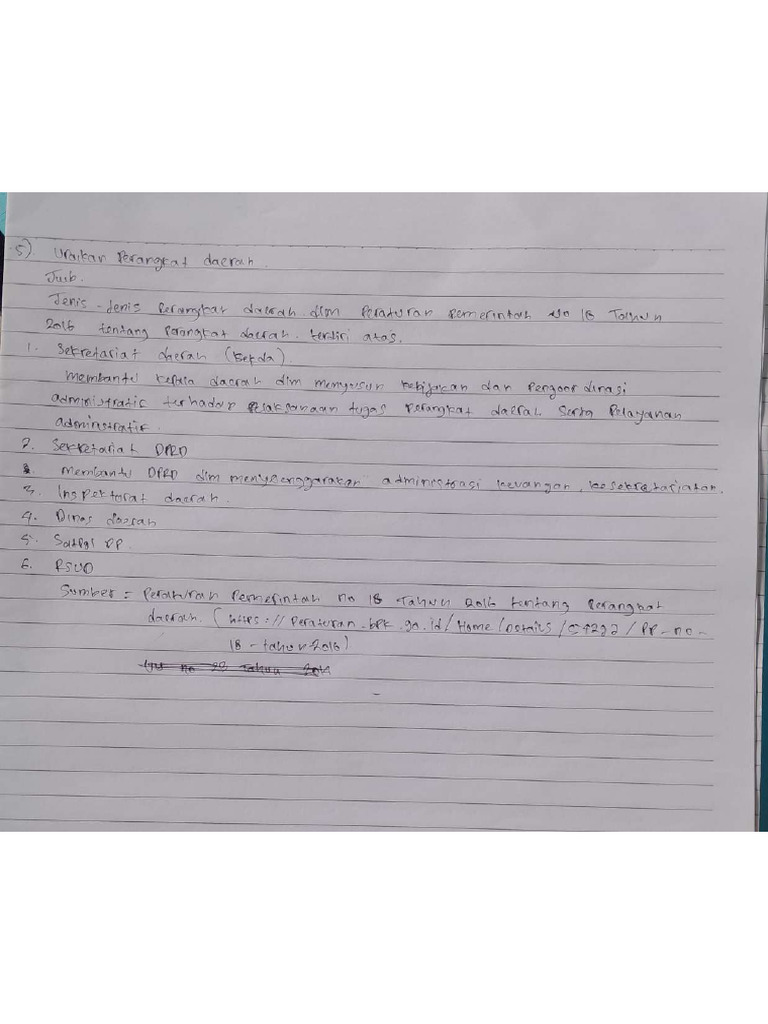 5). Uraikan Perangkat daerah.
Jwb.
Jenis-Jenis Perangkat daerah dlm Peraturan Pemerintah No 18 Tahun
2016 tentang Perangkat daerah. terdiri atas.
1. Sekretariat daerah (Sekda)
membantu kepala daerah dlm menyusun kebijakan dan Pengoordinasi
administratif terhadap pelaksanaan tugas Perangkat daerah Serta Pelayanan
administratif.
2. Sekretariat DPRD
membantu DPRD dlm menyelenggarakan administrasi keuangan, kesekretariatan.
3. Inspektorat daerah.
4. Dinas daerah
5. Satpol PP.
6. RSUD
Sumber = Peraturan Pemerintah no 18 Tahun 2016 tentang Perangkat
daerah. (https://Peraturan.bpk.go.id/Home/Details/54292/PP-no-
18-tahun 2016)